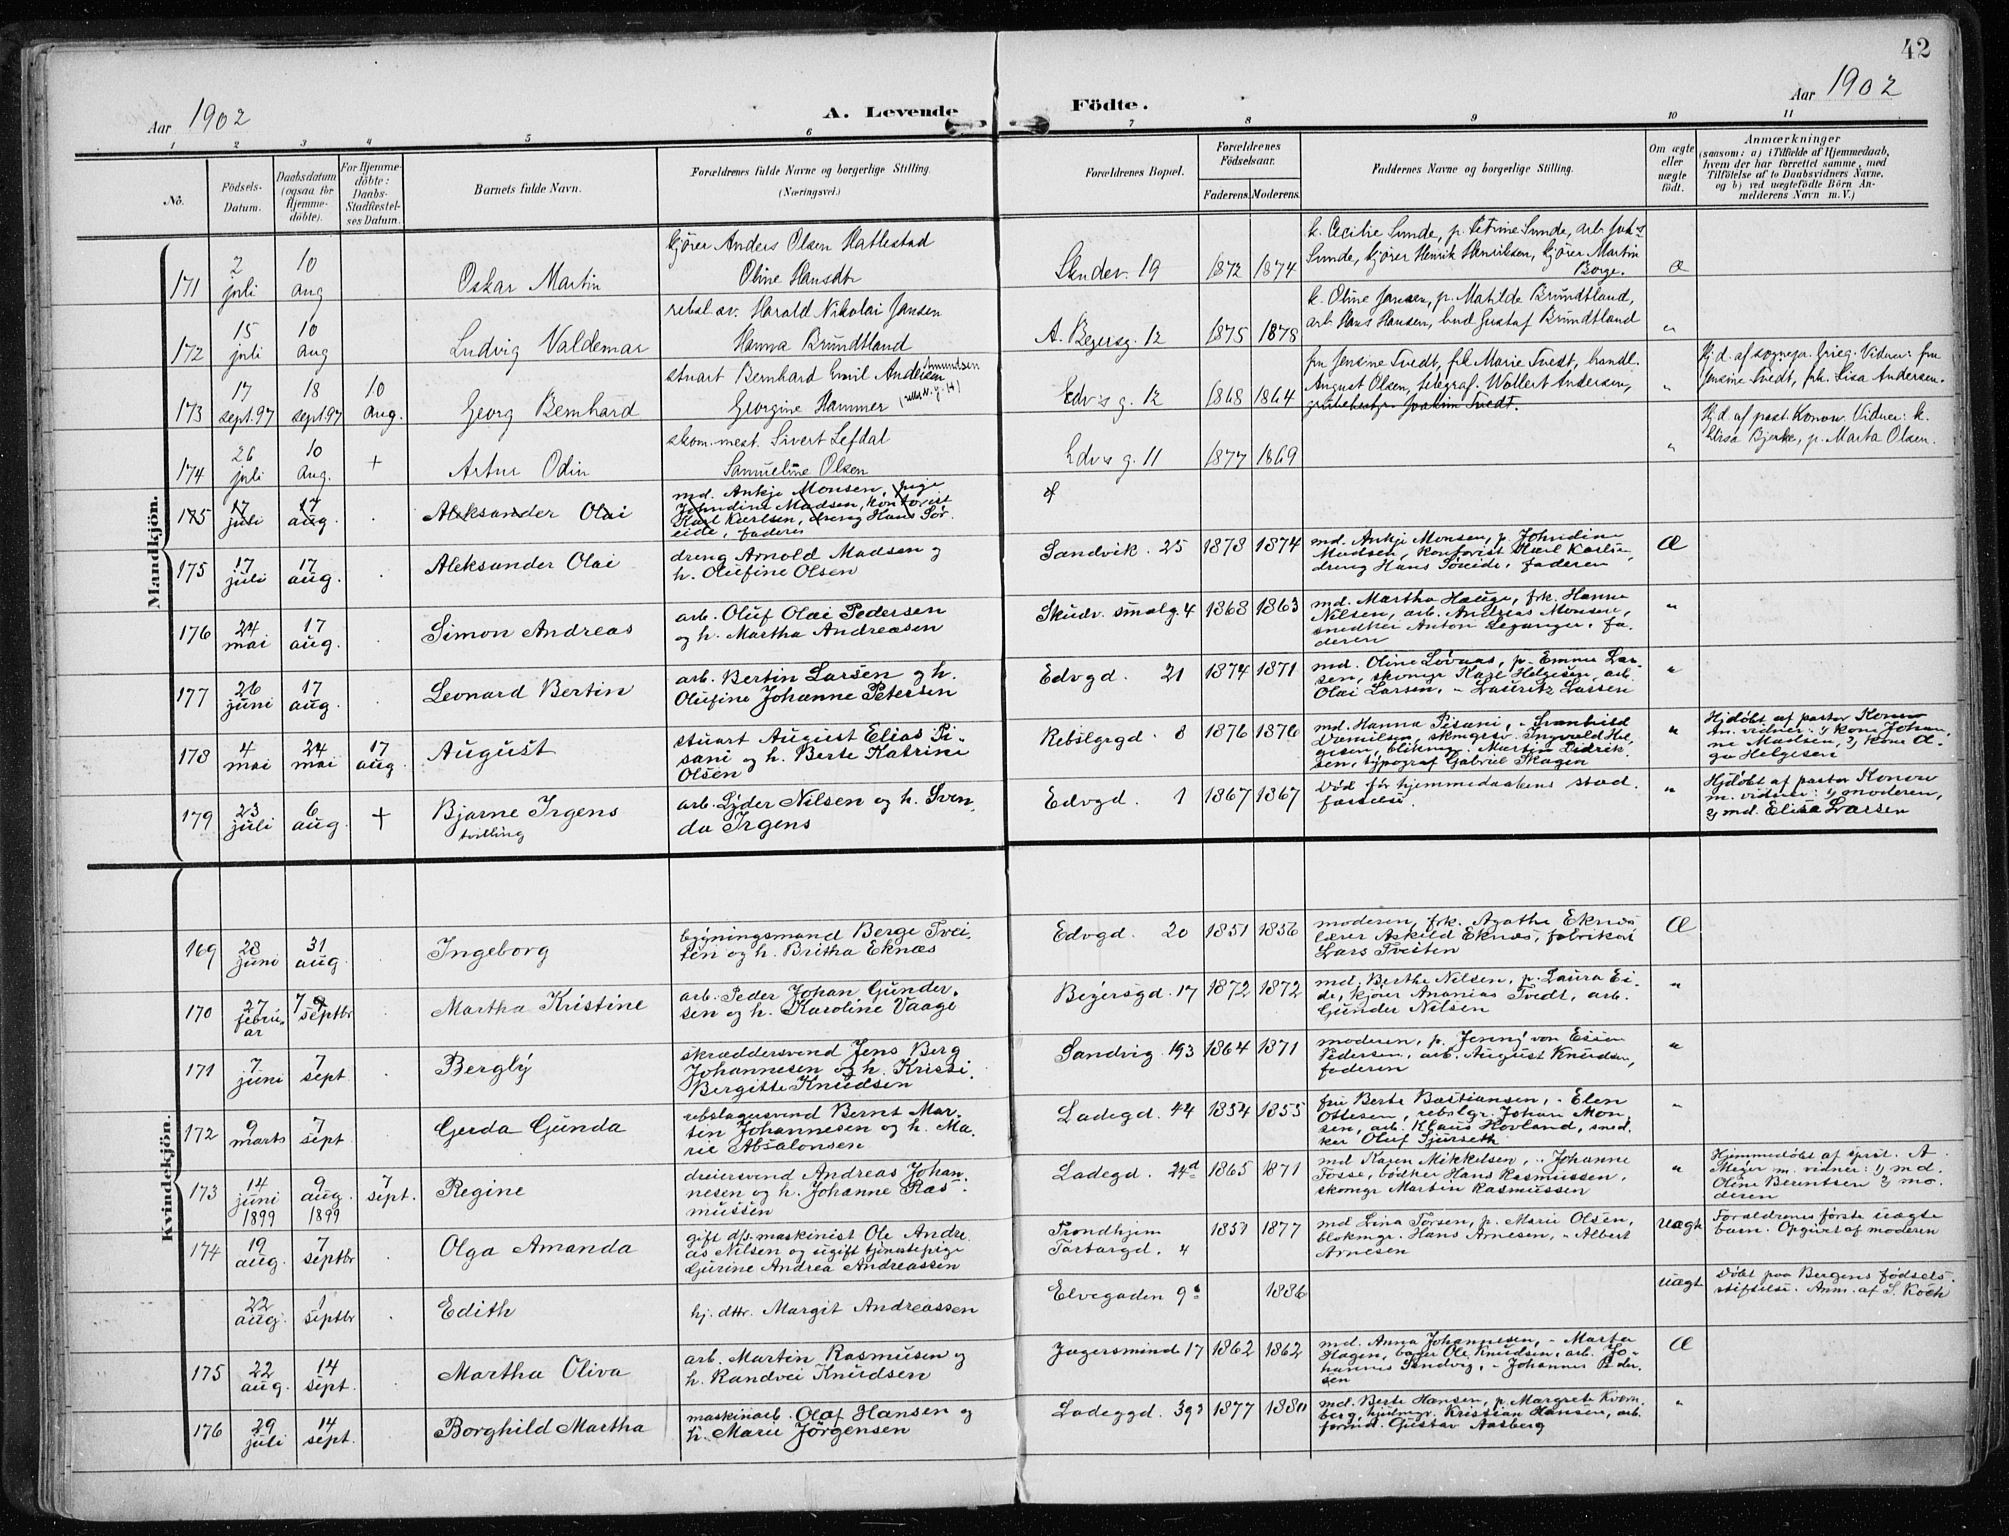 42
Aar 1902
A. Levende Födte.
Aar 1902
1 2 3 4 5 6 7 8 9 10 11
No.
Födsels-Datum.
Daabsdatum (ogsaa for Hjemme-döbte).
For Hjemme-döbte: Daabs-Stadfæstel-ses Datum.
Barnets fulde Navn.
Forældrenes fulde Navne og borgerlige Stilling.
(Næringsvei.)
Forældrenes Bopæl.
Forældrenes Födselsaar.
Faderens. Moderens.
Faddernes Navne og borgerlige Stilling.
Om ægte eller uægte födt.
Anmærkninger
(saasom: a) i Tilfælde af Hjemmedaab,
hvem der har forrettet samme, med
Tilföielse af to Daabsvidners Navne,
og b) ved uægtefödte Börn An-
melderens Navn m. V.)
Mandkjön.
171 2 juli 10 aug Oskar Martin
kjører Anders Olsen Hatlestad
Oline Hansdtr
Skudev. 19 1872 1874
k. Cecilie Sunde, p. Petrine Sunde, arb. Joh.s
Sunde, kjører Henrik Henriksen, kjører Martin
Borge. æ
172 15 juli 10 aug Ludvig Valdemar
rebsl.sv. Harald Nikolai Jansen
Hanna Brundtland
A. Beyersg. 12 1875 1878
k. Oline Jansen, p. Matilde Brundtland,
arb Hans Hansen, bud Gustaf Brundtland "
173 17 sept. 97 18 sept. 97 10 aug. Georg Bernhard
stuart Bernhard Emil Andersen Amundsen
Georgine Hammer
Edv.s g. 12 1868 1864
fru Jensine Tvedt, frk Marie Tvedt, handl.
August Olsen, telegraf. Wollert Andersen,
Joakim Tvedt. "
Hj d. af sognepr. Grieg. Vidner: fru
Jensine Tvedt, frk. Lisa Andersen.
174 26 juli 10 aug. + Artur Odin
skom. mest. Sivert Lefdal
Samueline Olsen
Edv.s g. 11 1877 1869 "
Hj d. af past. Konow. Vidner: k.
Elisa Bjerke, p. Marta Olsen.
175 17 juli 17 aug. Aleksander Olai
md. Ankje Monsen, pige
Johndine Madsen, kontorist
Karl Karlsen, dreng Hans Sør
eide, faderen
175 17 juli 17 aug. Aleksander Olai
dreng Arnold Madsen og
h. Olufine Olsen
Sandvik. 25 1873 1874
md. Ankje Monsen, p. Johndine
Madsen, kontorist Karl Karlsen,
dreng Hans Søreide, faderen Æ
176 24 mai 17 aug. Simon Andreas
arb. Oluf Olai Pedersen
og h. Martha Andreasen
Skudv. smalg. 4 1868 1863
md. Martha Hauge, frk. Hanna
Nilsen, arb. Andreas Monsen,
snedker Anton Leganger, fa-
deren "
177 26 juni 17 aug. Leonard Bertin
arb. Bertin Larsen og h.
Olufine Johanne Petersen
Edvgd. 21 1874 1871
md. Oline Løvaas, p. Emma Lar
sen, skomgr Kare Helgesen, arb.
Olai Larsen, " Lauritz Larsen "
178 4 mai 24 mai 17 aug. August
stuart August Elias Pi-
sani og h. Berte Katrine
Olsen
Rebslgrgd. 8 1876 1876
md. Hanna Pisani, " Svanhild
Danielsen, skmgrsv. Ingvald Hel
gesen, blikmgr. Martin Didrik
sen, typograf Gabriel Skagen "
Hjdøbt af pastor Konow
An. vidner: 1) kone Johan
ne Madsen, 2) kone Ol-
ga Helgesen
179 23 juli 6 aug. + Bjarne Irgens
tvilling
arb. Lyder Nilsen og h. Sven
da Irgens
Edvgd. 1 1867 1867
Død før hjemmedaabens stad
fæstelse. "
Hjdøbt af pastor Konow
m. vidner: 1) moderen,
2) md. Elisa Larsen
Kvindekjön.
169 28 juni 31 aug. Ingeborg
bygningsmand Berge Tvei
ten og h. Britha Eknæs
Edvgd. 20 1851 1856
moderen, frk. Agathe Eknæs
lærer Askild Eknæs, fabrikør
Lars Tveiten Æ
170 27 febru-ar 7 septbr Martha Kristine
arb. Peder Johan Gunder-
sen og h. Karoline Vaage
Beyersgd. 17 1872 1872
md. Berthe Nilsen, p. Laura Ei-
de, kjører Ananias Tvedt, arb.
Gunder Nilsen "
171 7 juni 7 sept. Bergly
skræddersvend Jens Berg
Johannesen og h. Kristi
Bergitte Knudsen
Sandvig. 193 1864 1871
moderen, p. Jenny von Essen
Pedersen, arb. August Knudsen,
faderen "
172 9 marts 7 sept. Gerda Gunda
rebslagersvend Bernt Mar-
tin Johannesen og h. Ma-
rie Absalonsen
Ladegd. 44 1854 1855
fru Berte Bastiansen, " Elen
Ottesen, rebslgr. Johan Mon-
sen, arb. Klaus Hovland, sned
ker Oluf Sjurseth "
173 14 juni 1899 9 aug. 1899 7 sept. Regine
dreiersvend Andreas Johan-
nesen og h. Johanne Ras-
mussen
Ladegd. 24d 1865 1871
md Karen Mikkelsen, " Johanne
Fosse, bødker Hans Rasmussen,
skomgr Martin Rasmussen "
Hjemmedøbt af sprst. A
Meyer m. vidner: 1) md.
Oline Berentsen 2) mo-
deren
174 19 aug. 7 septbr Olga Amanda
gift dps. maskinist Ole Andre
as Nilsen og ugift tjenestepige
Gurine Andrea Andreassen
Trondhjem
Tartargd. 4 1851 1877
md Lina Torsen, p. Marie Olsen,
blokmgr. Hans Arnesen, " Albert
Arnesen uægt
Forældrenes første uægte
barn. Opgivet af moderen
22 aug. 1 septbr Edith
hj. dttr. Margit Andreassen
Elvegaden 9 1886 uægt
Døbt paa Bergens fødsels-
stiftelse. Anm. af S. Koch
175 22 aug. 14 sept. Martha Oliva
arb. Martin Rasmusen og
h. Randvei Knudsen
Jægersmind 17 1862 1862
md. Anna Johannesen, " Marta
Hagen, bager Ole Knudsen, arb. Jo-
hannes Sandvig, " Johannes Peder
sen Æ
176 29 juli 14 sept. Borghild Martha
maskinarb. Olaf Hansen og
h. Marie Jörgensen
Ladeggd. 393 1877 1880
md. Berte Hansen, p. Margrete Kvern
berg, hjulmgr. Kristian Hansen, arb.
formd. Gustav Aasberg "